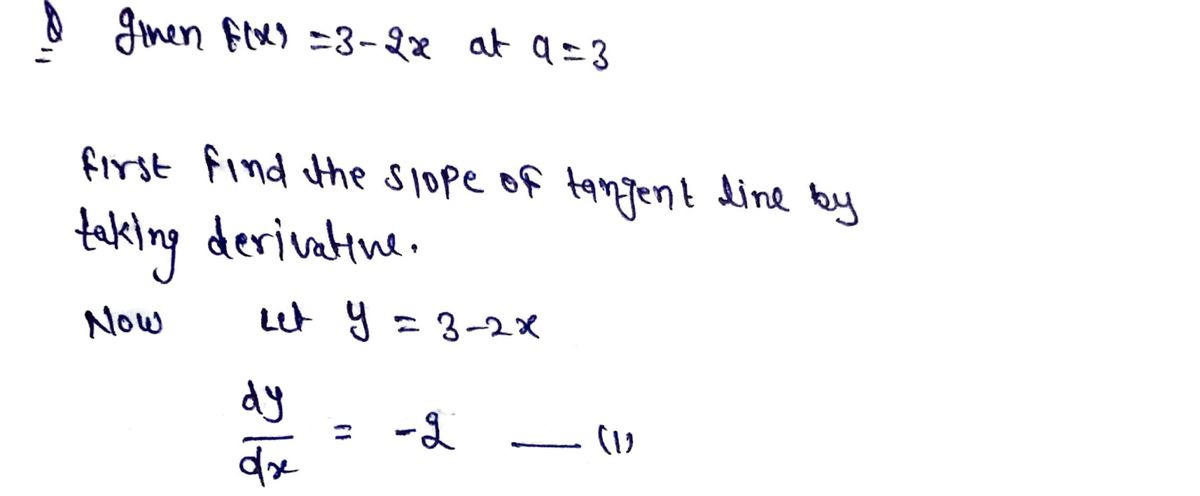 Q given f(x) = 3-2x at a=3
first find the slope of tangent line by
taking derivative.
Now Let y = 3-2x
dy/dx = -2 — (1)